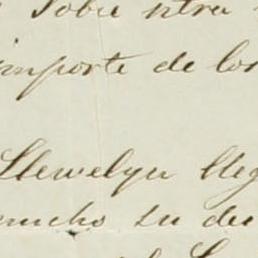 sobre ntra
importe de los
Llewelyn lleg
mucho su de